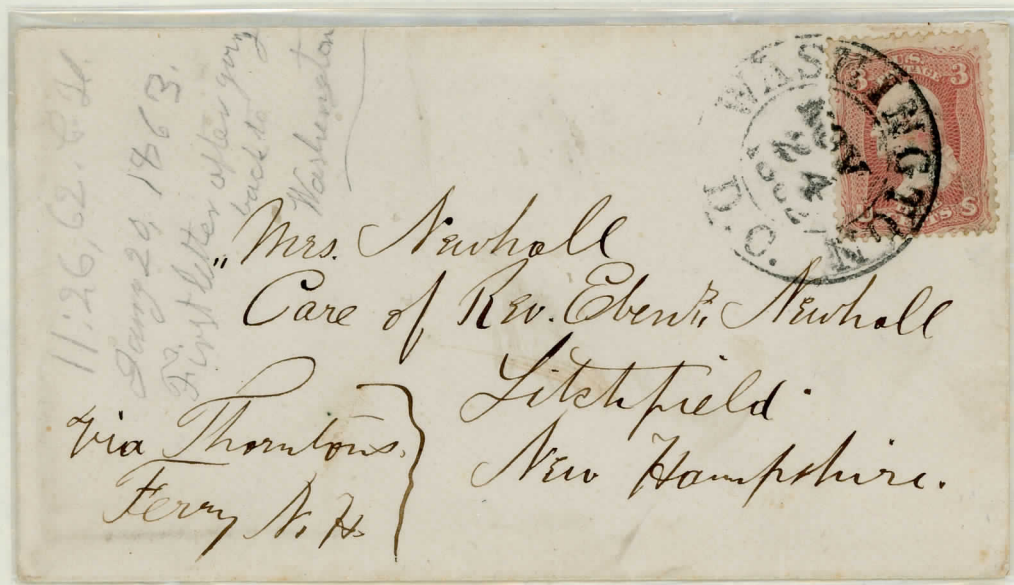 11:26, 62. C. H.
Jany 29, 1863.
To.
First letter after going
back to
Washington
WASHINGTON
D.C.
24
U.S.
POSTAGE
3 3
CENTS
„Mrs. Newhall
Care of Rev. Ebenr. Newhall
Litchfield.
New Hampshire.
via Thorntons.
Ferry N. H.